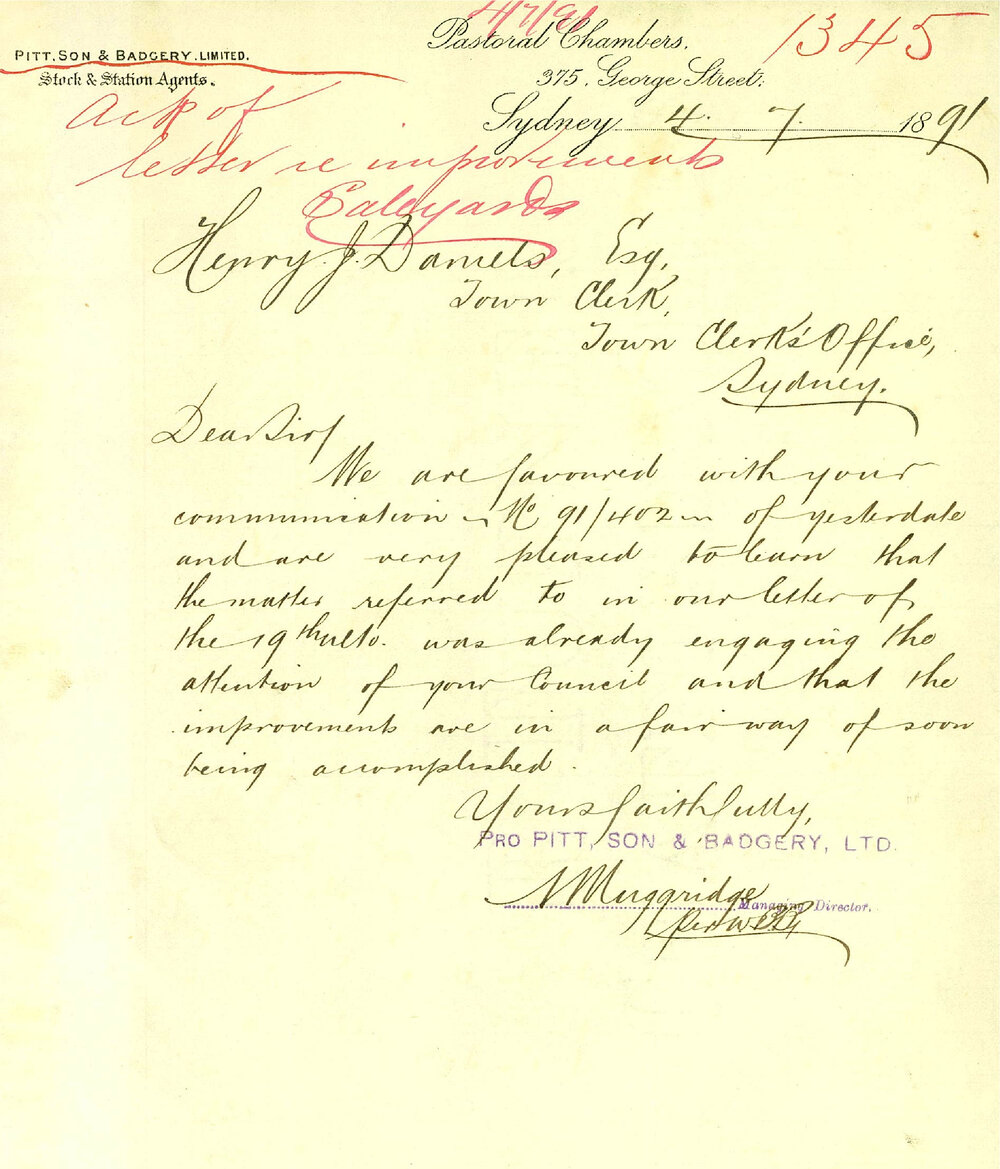 4/7/91
1345
PITT, SON & BADGERY. LIMITED.
Stock & Station Agents.
Pastoral Chambers,
375, George Street,
Sydney 4. 7. 1891
Ack of
letter re improvements
Saleyards
Henry J. Daniels, Esq,
Town Clerk,
Town Clerk's Office,
Sydney.
Dear Sir/
We are favoured with your
communication - No 91/402 - of yesterdate
and are very pleased to learn that
the matter referred to in our letter of
the 19th ulto. was already engaging the
attention of your Council and that the
improvements are in a fair way of soon
being accomplished.
Yours faithfully,
PRO PITT, SON & BADGERY, LTD.
Muggridge
Managing Director.
Per